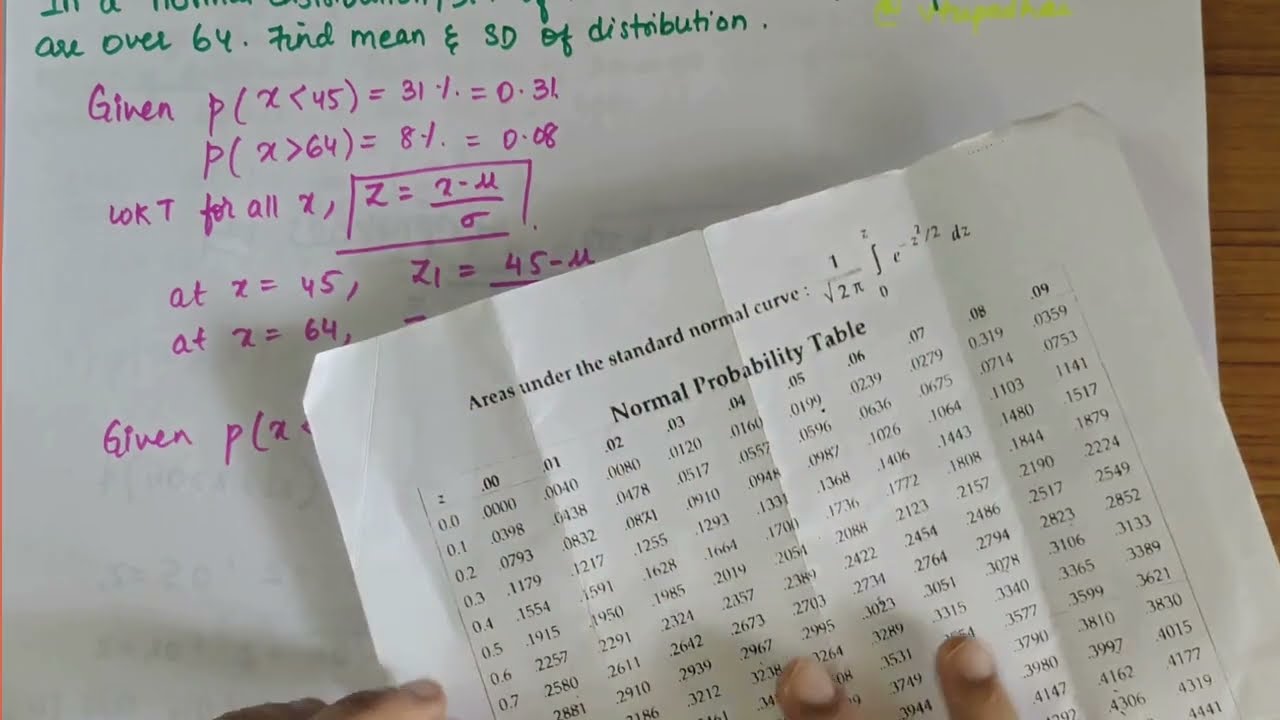 In a normal distribution, 31% of
are over 64. Find mean & SD of distribution.
Given p(x<45) = 31 % = 0.31
p(x>64) = 8% = 0.08
WKT for all x, Z = x-μ / σ .
at x = 45, Z1 = 45-μ
at x = 64,
Given p(x <
Areas under the standard normal curve : 1 / √2π ∫ 0 z e -z²/2 dz
Normal Probability Table
z .00 .01 .02 .03 .04 .05 .06 .07 .08 .09
0.0 .0000 .0040 .0080 .0120 .0160 .0199 .0239 .0279 0.319 .0359
0.1 .0398 .0438 .0478 .0517 .0557 .0596 .0636 .0675 .0714 .0753
0.2 .0793 .0832 .0871 .0910 .0948 .0987 .1026 .1064 .1103 1141
0.3 .1179 .1217 .1255 .1293 .1331 .1368 .1406 .1443 .1480 .1517
0.4 .1554 .1591 .1628 .1664 .1700 .1736 .1772 .1808 .1844 .1879
0.5 .1915 .1950 .1985 .2019 .2054 .2088 .2123 .2157 .2190 .2224
0.6 .2257 .2291 .2324 .2357 .2389 .2422 .2454 .2486 .2517 .2549
0.7 .2580 .2611 .2642 .2673 .2703 .2734 .2764 .2794 .2823 .2852
.2881 .2910 .2939 .2967 .2995 .3023 .3051 .3078 .3106 .3133
.3186 .3212 .3238 .3264 .3289 .3315 .3340 .3365 .3389
.3531 .3577 .3599 .3621
.3749 .3790 .3810 .3830
.3944 .3980 .3997 .4015
.4147 .4162 .4177
.4306 .4319
.4441